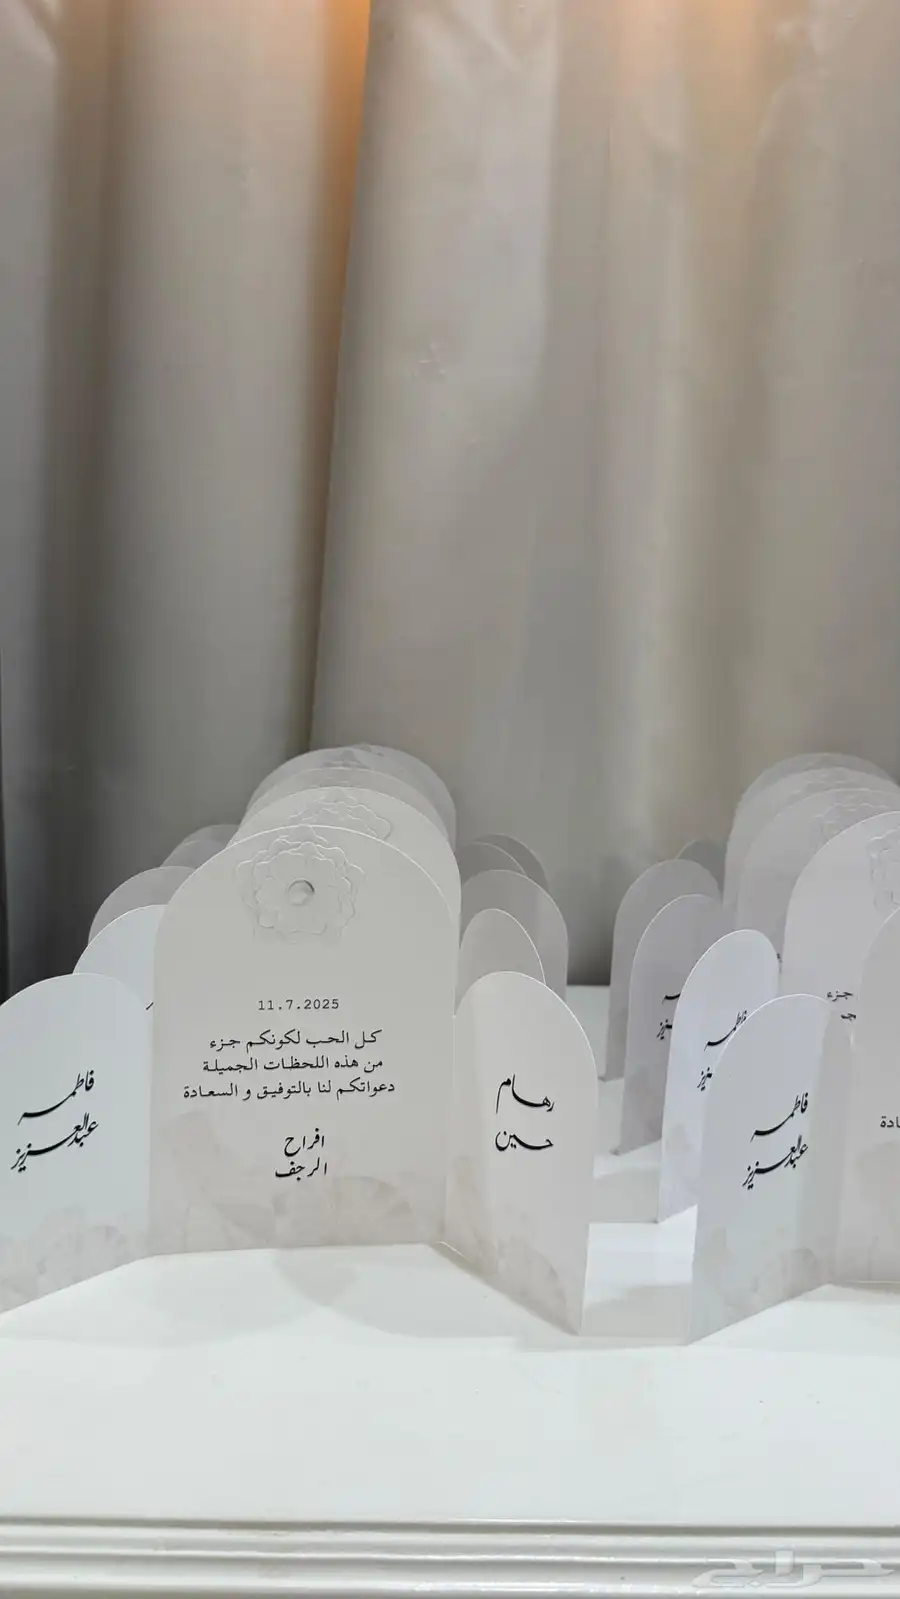 11.7.2025
كل الحب لكونكم جزء
من هذه اللحظات الجميلة
دعواتكم لنا بالتوفيق و السعادة
افراح
الرجف
رهام
حسين
فاطمه
عبدالعزيز
فاطمه
عبدالعزيز
جزء
حراج